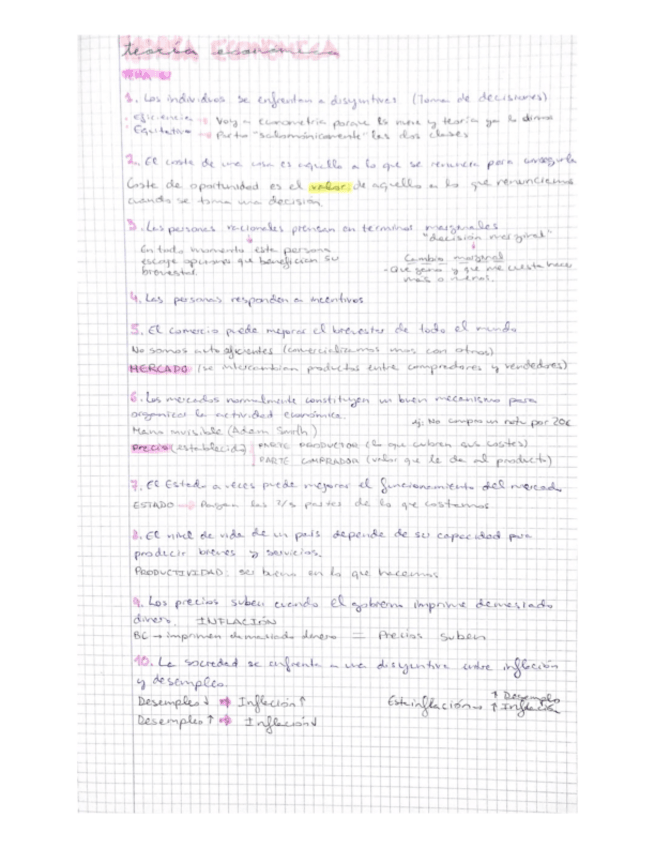 teoría económica
TEMA 1
1. Los individuos se enfrentan a disyuntivas (Toma de decisiones)
Eficiencia → Voy a econometría porque es nueva y teoría ya la
Equitativo → Partir "salomónicamente" las dos clases
2. El coste de una cosa es aquello a lo que se renuncia para conseguirla
Coste de oportunidad es el valor de aquello a lo que renunciamos
cuando se toma una decisión.
3. Las personas racionales piensan en términos marginales
"decisión marginal"
En todo momento esta persona
escoge opciones que benefician su
bienestar.
Cambio marginal
- Que gano y que me cuesta hacer
más o menos.
4. Las personas responden a incentivos
5. El comercio puede mejorar el bienestar de todo el mundo
No somos auto eficientes (comercializamos mas con otros)
MERCADO (se intercambian productos entre compradores y vendedores)
6. Los mercados normalmente constituyen un buen mecanismo para
organizar la actividad económica.
ej: No compro un notu por 20€
Mano invisible (Adam Smith)
Precio (establecido) PARTE PRODUCTOR (lo que cubren sus costes)
PARTE COMPRADOR (valor que le da al producto)
7. El Estado a veces puede mejorar el funcionamiento del mercado
ESTADO → Pagan las 2/3 partes de lo que costamos
8. El nivel de vida de un país depende de su capacidad para
producir bienes y servicios.
PRODUCTIVIDAD: ser bueno en lo que hacemos
9. Los precios suben cuando el gobierno imprime demasiado
dinero. INFLACIÓN
BC → imprimen demasiado dinero = Precios suben
10. La sociedad se enfrenta a una disyuntiva entre inflación
y desempleo.
Desempleo ↓ → Inflación ↑
Estanflación → ↑ Desempleo
↑ Inflación
Desempleo ↑ → Inflación ↓